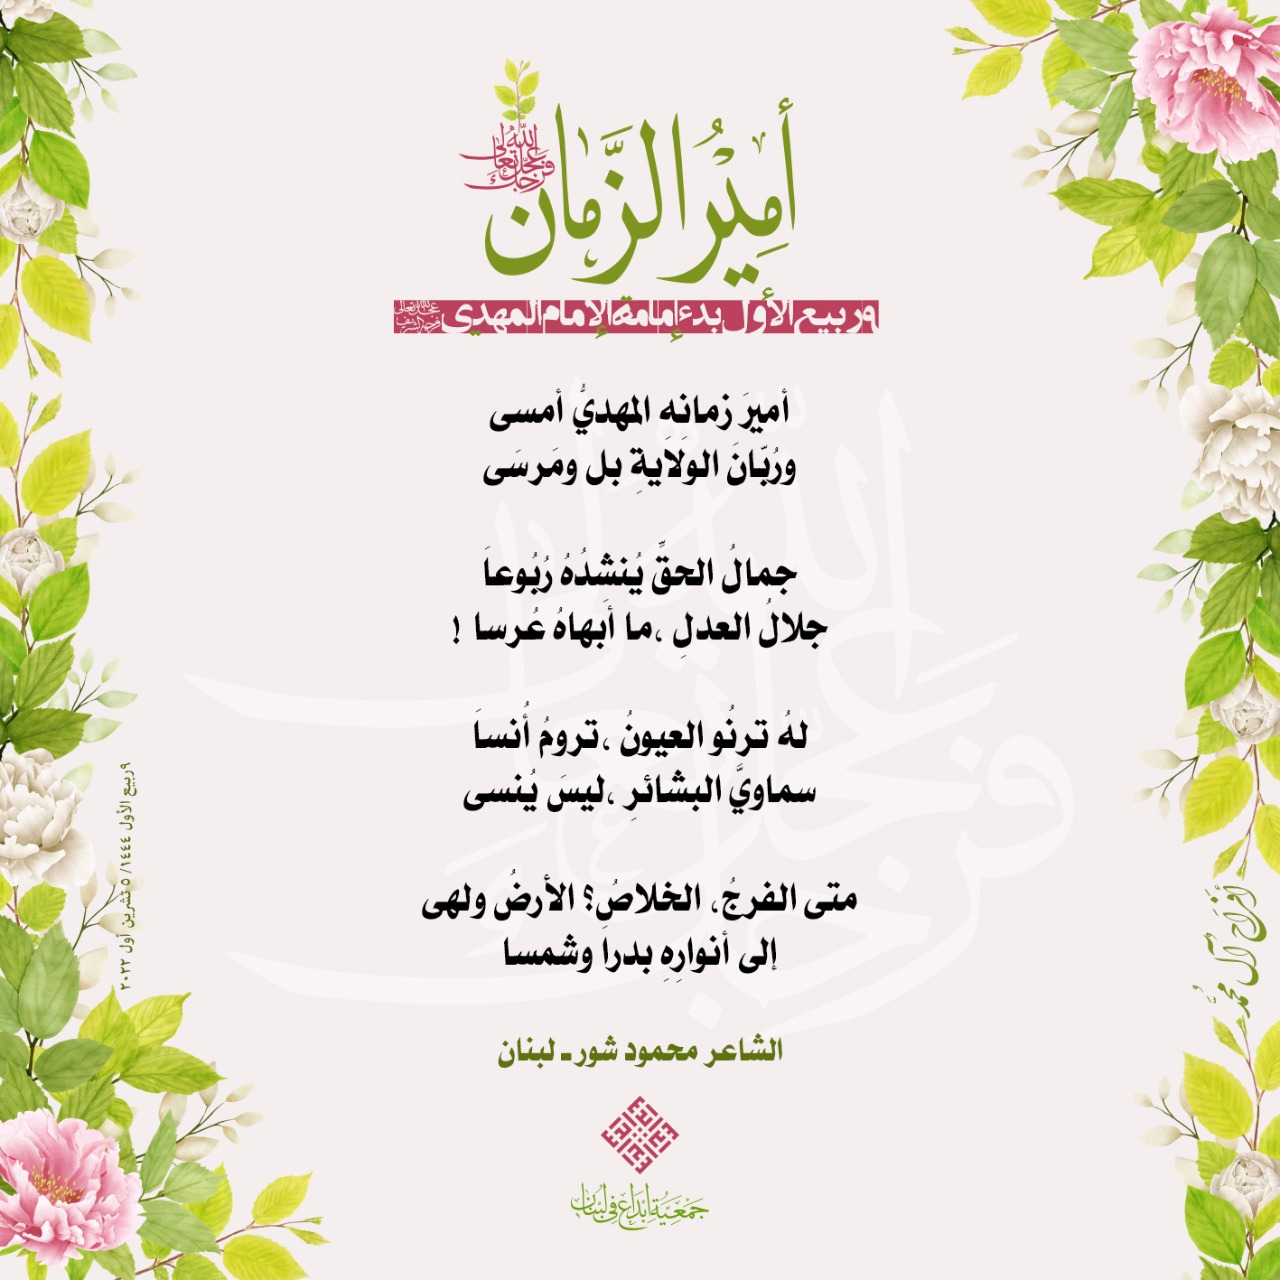 أَمِيْرُ الزَّمَان
عجّل الله تعالى فرجك
٩ ربيع الأول بدء إمامة الإمام المهدي عجل الله تعالى فرجه الشريف
أميرَ زمانه المهديُّ أمسى
ورُبّانَ الوَلَايةِ بل ومَرسَى
جمالُ الحقِّ يُنشدُهُ رُبُوعاَ
جلالُ العدلِ ،ما أَبهاهُ عُرسا !
لهُ ترنُو العيونُ ،ترومُ أُنساَ
سماويَّ البشائرِ ،ليسَ يُنسى
متى الفرجُ، الخلاصُ؟ الأرضُ ولهى
إلى أنوارِهِ بدراَ وشمسا
الشاعر محمود شور ـ لبنان
جمعية إبداع في لبنان
٩ربيع الأول ١٤٤٤/ ٥ تشرين أول ٢٠٢٢
أفراح آل محمد